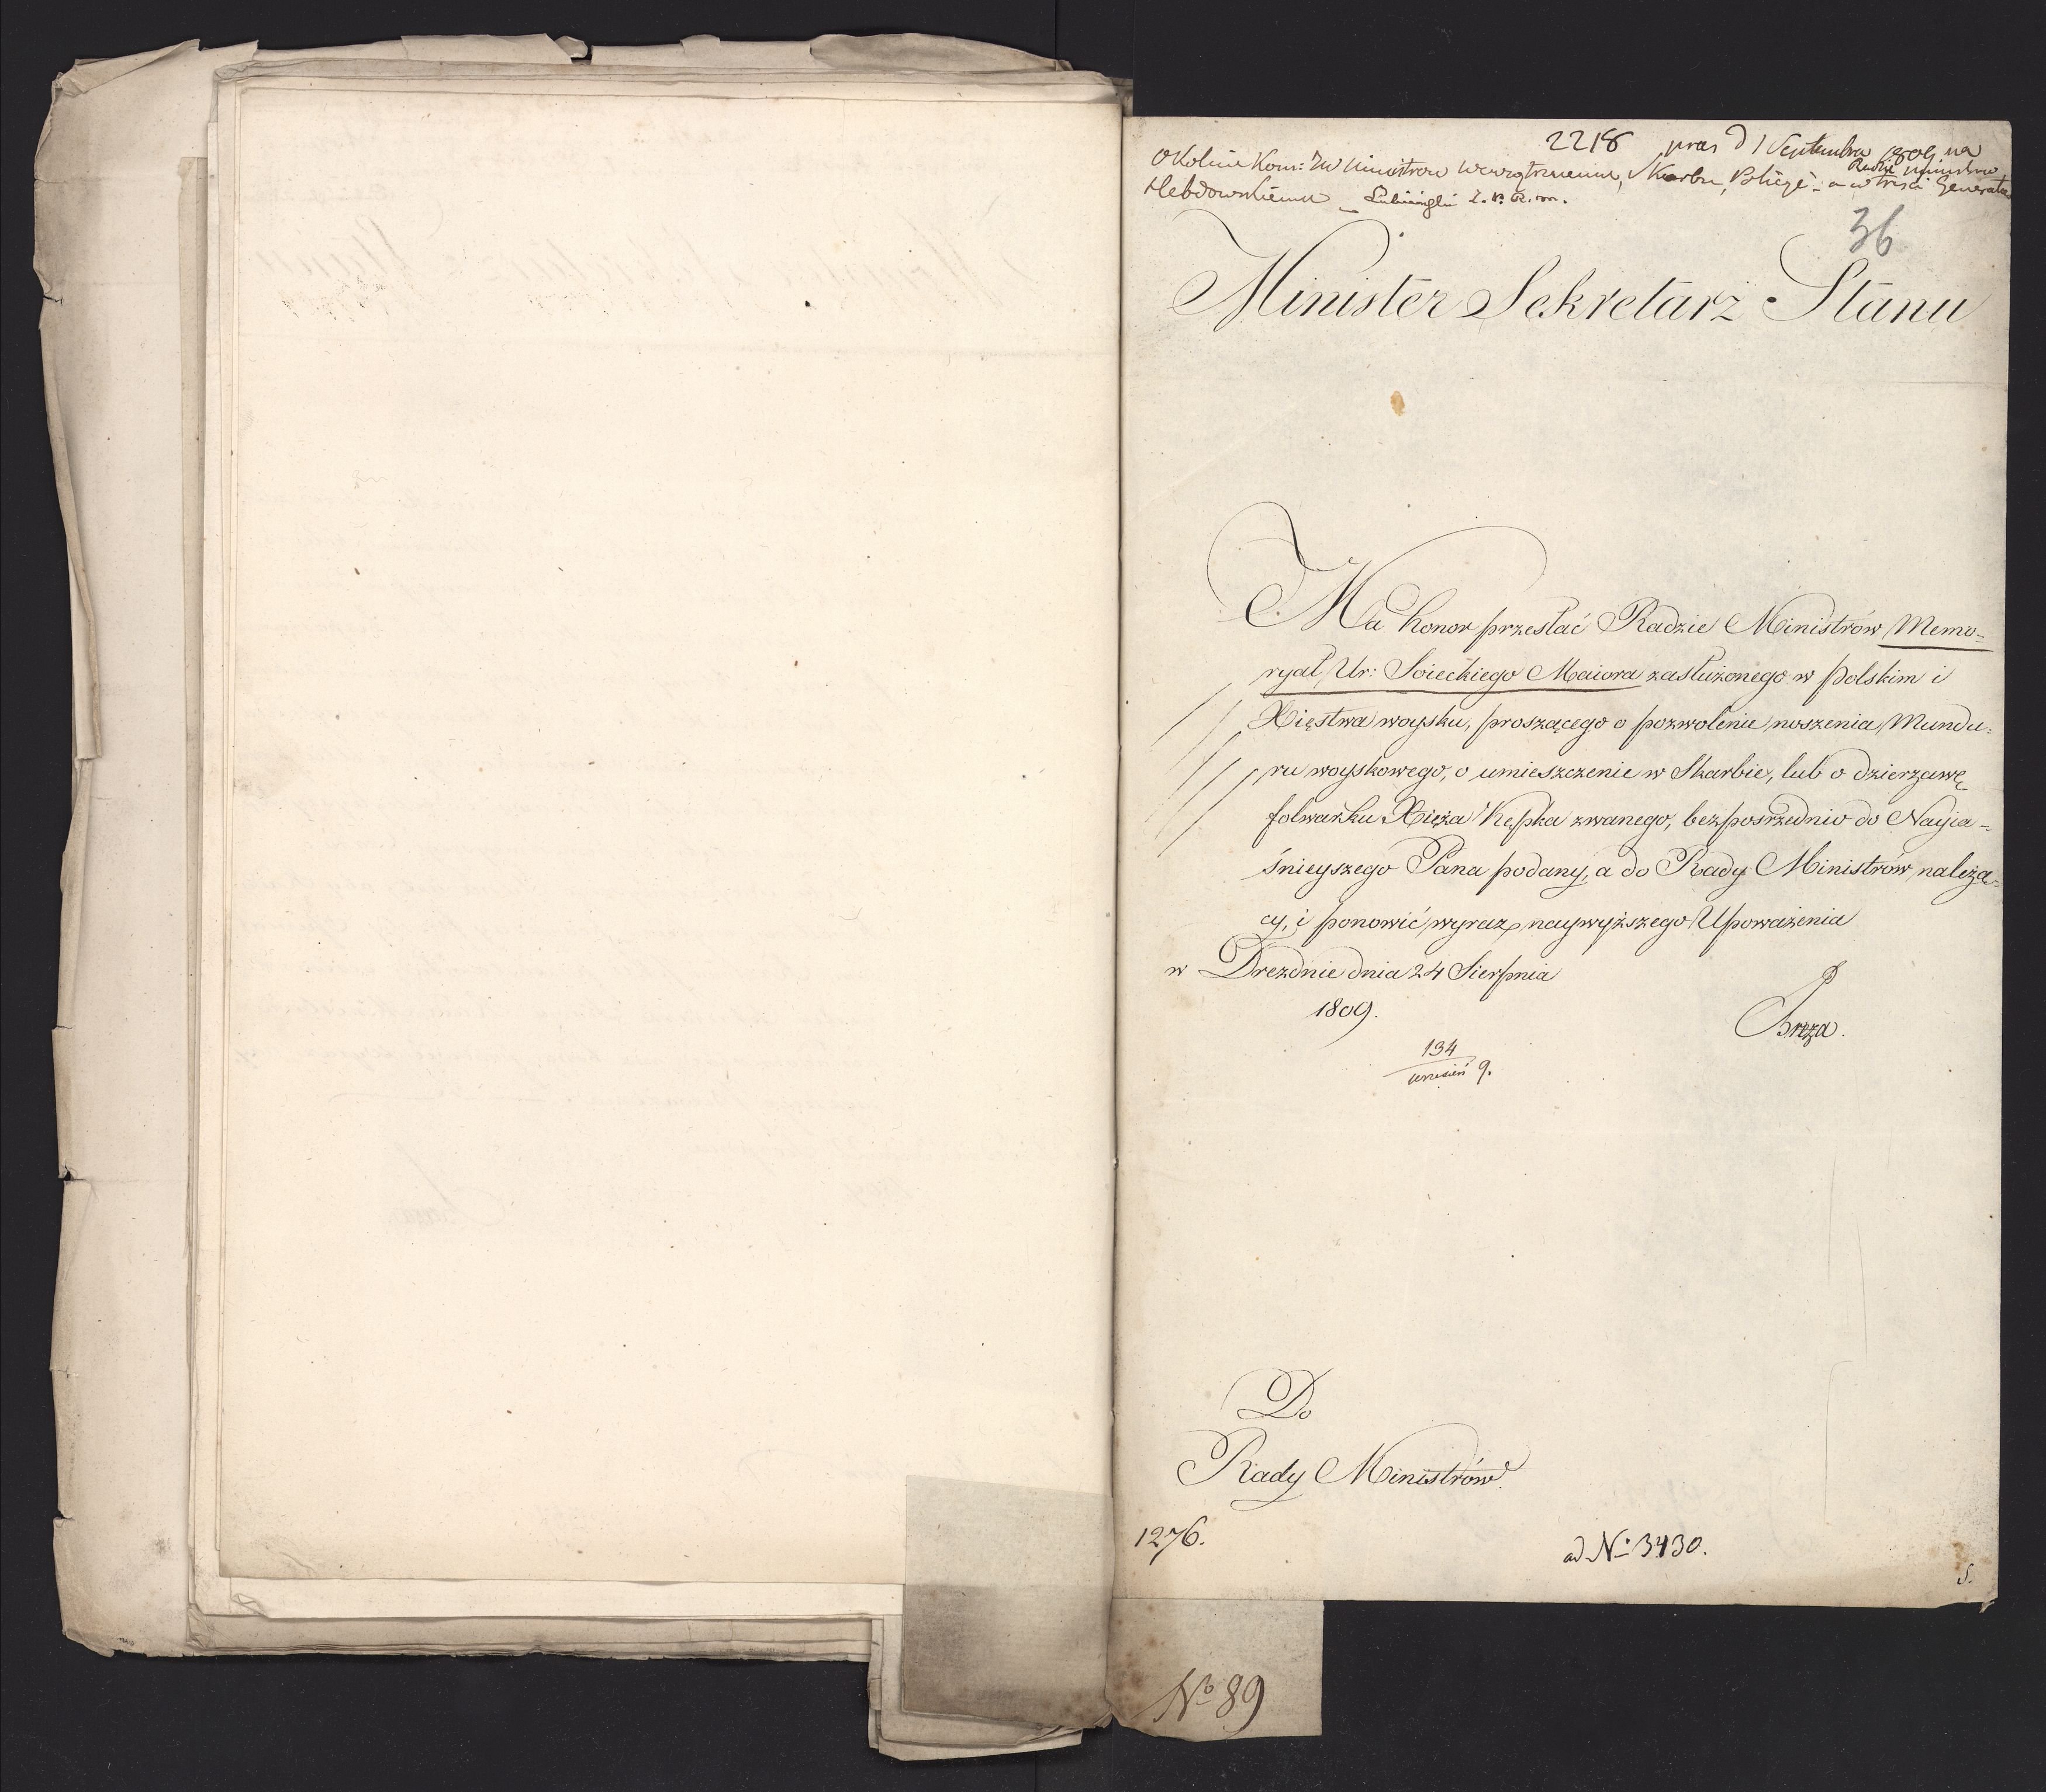 2218 pras d 1 Septembra 1809 na
Radzie Ministrow
okolnie Kom: JW Ministrow Wewnętrznemu, Skarbu, Policyi - a w treści Generałowi
Hebdowskiemu
36
Minister Sekretarz Stanu
Ma honor przesłać Radzie Ministrów Memo=
ryał Ur: Soieckiego Maiora zasłużonego w polskim i
Xięstwa woysku, proszącego o pozwolenie noszenia Mundu=
ru woyskowego, o umieszczenie w Skarbie, lub o dzierzawę
folwarku Xięża Kępka zwanego, bezpośrzednio do Nayia=
śnieyszego Pana podany, a do Rady Ministrów należą=
cy, i ponowić wyraz naywyższego Upoważenia
w Dreznie dnia 24 Sierpnia
1809.
Breza.
134
wrzesień 9.
Do
Rady Ministrów.
1276.
ad No: 3430.
S.
No 89